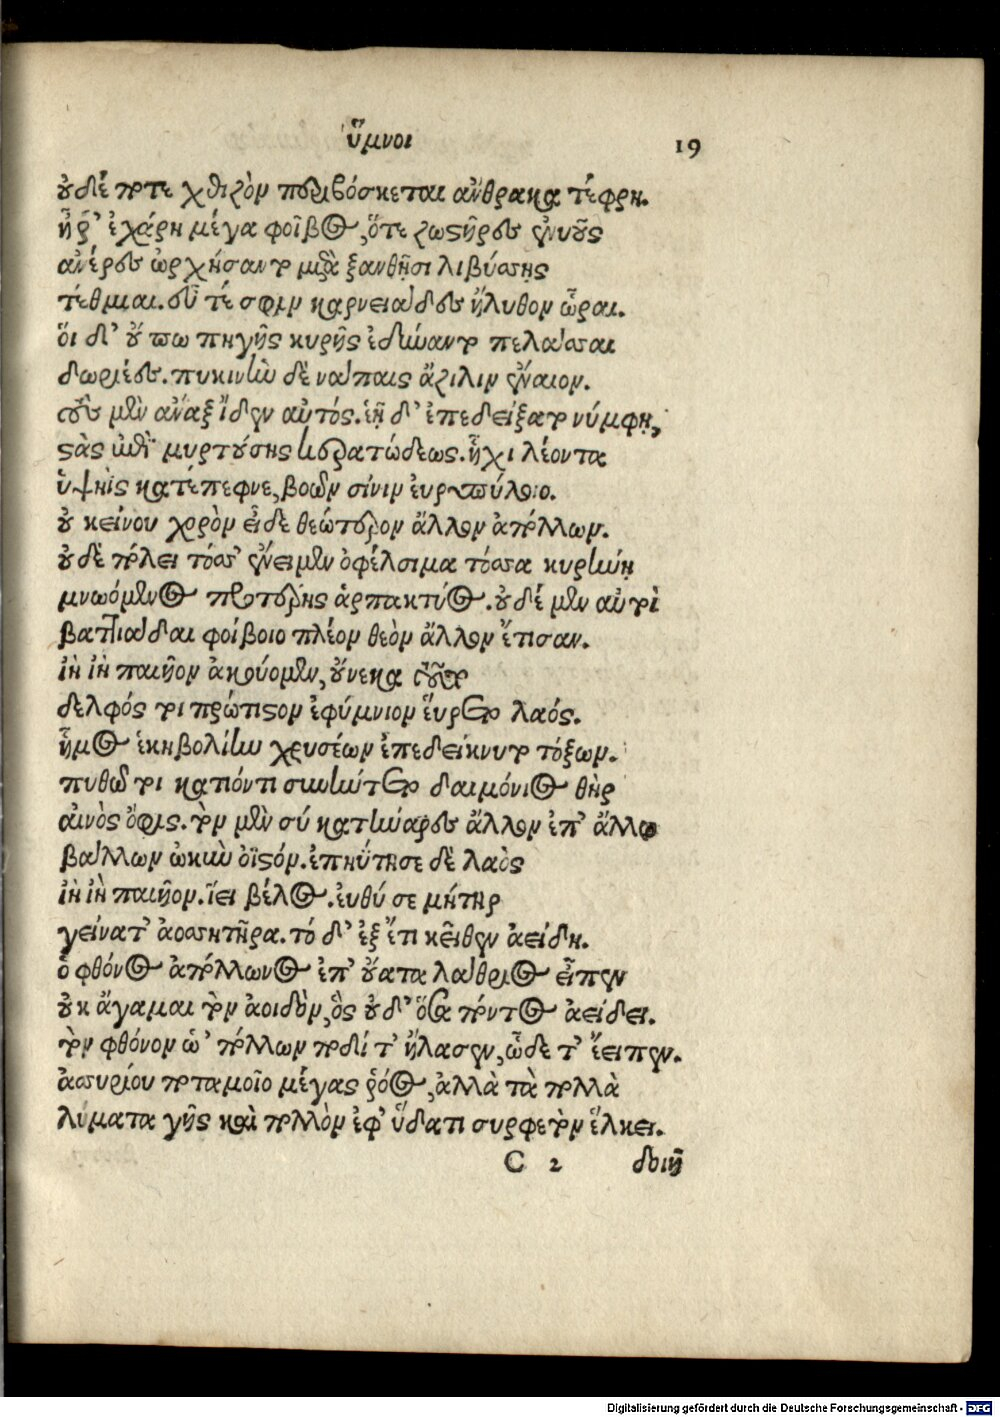 ὕμνοι 19
οὐδέ ποτε χθιζὸν περιβόσκεται ἄνθρακα τέφρη.
ἦ ῥ' ἐχάρη μέγα φοῖβος, ὅτε ζωστῆρες ἐνυοῦς
ἀνέρες ὠρχήσαντο μετὰ ξανθῇσι λιβύσσῃς
τέθμιαι. εὖ τέ σφιν καρνειάδες ἤλυθον ὧραι.
ὅι δ' οὔ πω πηγῆς κυρῆς ἐδύναντο πελάσσαι
δωριέες. πυκινὴν δὲ νάπαις ἄζιλιν ἔναιον.
τοὺς μὲν ἄναξ ἴδεν αὐτός. ἑῇ δ' ἐπεδείξατο νύμφῃ,
στὰς ἐπὶ μυρτούσης κερατώδεος. ἧχι λέοντα
ὑψηῒς κατέπεφνε, βοῶν σίνιν εὐρυπύλοιο.
οὐ κείνου χορὸν εἶδε θεώτερον ἄλλον ἀπόλλων.
οὐδὲ πόλει τόσσ' ἔνειμεν ὀφέλσιμα τόσσα κυρήνῃ
μνωόμενος προτέρης ἁρπακτύος. οὐδέ μὲν αὐτοὶ
βαττιάδαι φοίβοιο πλέον θεὸν ἄλλον ἔτισαν.
ἰὴ ἰὴ παιῆον ἀκούομεν, οὕνεκα τοῦτο
δελφός τοι πρώτιστον ἐφύμνιον εὕρετο λαός.
ἦμος ἑκηβολίην χρυσέων ἐπεδείκνυτο τόξων.
πυθώ τοι κατιόντι συνήντετο δαιμόνιος θὴρ
αἰνὸς ὄφις. τὸν μὲν σύ κατήναρες ἄλλον ἐπ' ἄλλῳ
βάλλων ὠκὺν ὀϊστόν. ἐπηΰτησε δὲ λαὸς
ἰὴ ἰὴ παιῆον. ἵει βέλος. εὐθύ σε μήτηρ
γείνατ' ἀοσσητῆρα. τό δ' ἐξ ἔτι κεῖθεν ἀείδη.
ὁ φθόνος ἀπόλλωνος ἐπ' οὔατα λάθριος εἶπεν
οὐκ ἄγαμαι τὸν ἀοιδὸν, ὃς οὐδ' ὅσα πόντος ἀείδει.
τὸν φθόνον ὡ' πόλλων ποδί τ' ἤλασεν, ὧδε τ' ἔειπεν.
ἀσσυρίου ποταμοῖο μέγας ῥόος, ἀλλὰ τὰ πολλὰ
λύματα γῆς καὶ πολλὸν ἐφ' ὕδατι συρφετὸν ἕλκει.
C 2 δοιῆ
Digitalisierung gefördert durch die Deutsche Forschungsgemeinschaft - DFG